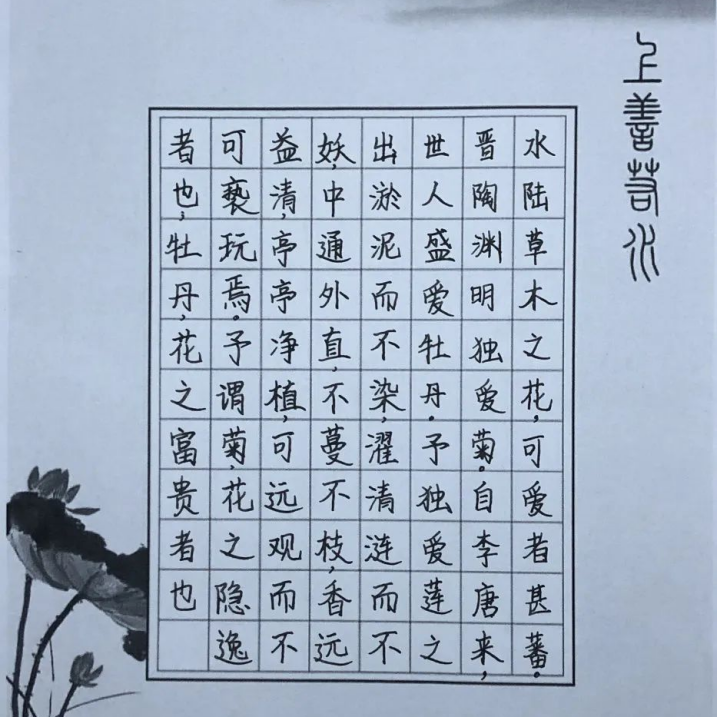 上善若水
水陆草木之花，可爱者甚蕃。
晋陶渊明独爱菊。自李唐来，
世人盛爱牡丹。予独爱莲之
出淤泥而不染，濯清涟而不
妖，中通外直，不蔓不枝，香远
益清，亭亭净植，可远观而不
可亵玩焉。予谓菊，花之隐逸
者也，牡丹，花之富贵者也